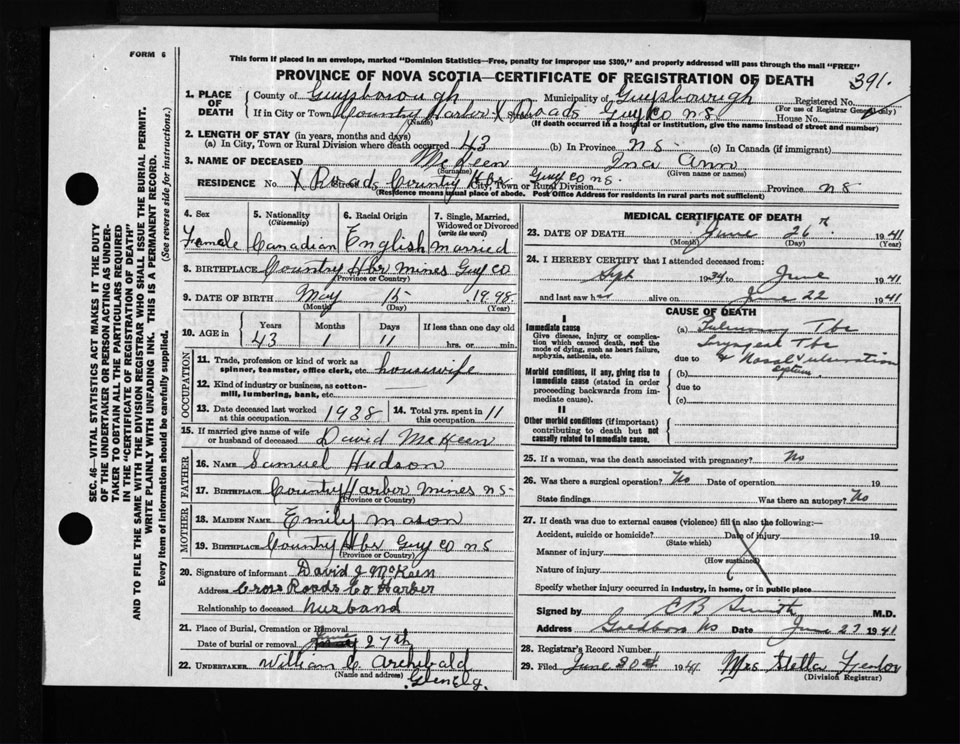 FORM 6
This form if placed in an envelope, marked "Dominion Statistics—Free, penalty for improper use $300," and properly addressed will pass through the mail "FREE"
PROVINCE OF NOVA SCOTIA—CERTIFICATE OF REGISTRATION OF DEATH 391.
SEC. 46—VITAL STATISTICS ACT MAKES IT THE DUTY
OF THE UNDERTAKER OR PERSON ACTING AS UNDER-
TAKER TO OBTAIN ALL THE PARTICULARS REQUIRED
IN THE "CERTIFICATE OF REGISTRATION OF DEATH"
AND TO FILE THE SAME WITH THE DIVISION REGISTRAR WHO SHALL ISSUE THE BURIAL PERMIT.
WRITE PLAINLY WITH UNFADING INK. THIS IS A PERMANENT RECORD.
Every item of information should be carefully supplied. (See reverse side for instructions.)
1. PLACE OF DEATH County of Guysborough Municipality of Guysbourigh Registered No.
(For use of Registrar General only)
If in City or Town Country Harbor X Roads Guy Co N.S. House No.
(Name) (If death occurred in a hospital or institution, give the name instead of street and number)
2. LENGTH OF STAY (in years, months and days)
(a) In City, Town or Rural Division where death occurred 43 (b) In Province N.S. (c) In Canada (if immigrant)
3. NAME OF DECEASED McKeen Ina Ann
(Surname) (Given name or names)
RESIDENCE No. X Roads Street Country Hbr Guy Co N.S. City, Town or Rural Division Province N S
(Residence means usual place of abode. Post Office Address for residents in rural parts not sufficient)
4. Sex 5. Nationality (Citizenship) 6. Racial Origin 7. Single, Married, Widowed or Divorced (write the word)
Female Canadian English Married
8. BIRTHPLACE Country Hbr Mines Guy Co
(Province or Country)
9. DATE OF BIRTH May 15 1998
(Month) (Day) (Year)
10. AGE in Years Months Days If less than one day old
43 1 11 hrs. or min.
OCCUPATION
11. Trade, profession or kind of work as
spinner, teamster, office clerk, etc. housewife
12. Kind of industry or business, as cotton-
mill, lumbering, bank, etc.
13. Date deceased last worked
at this occupation 1938 14. Total yrs. spent in 11
15. If married give name of wife
or husband of deceased David McKeen
FATHER
16. NAME Samuel Hudson
17. BIRTHPLACE Country Harbor Mines N S
(Province or Country)
MOTHER
18. MAIDEN NAME Emily Mason
19. BIRTHPLACE Country Hbr Guy Co N S
(Province or Country)
20. Signature of informant David J McKeen
Address Cross Roads Co Harber
Relationship to deceased husband
21. Place of Burial, Cremation or Removal
Date of burial or removal June 27th
22. UNDERTAKER William C. Archibald
(Name and address) Glenelg.
MEDICAL CERTIFICATE OF DEATH
23. DATE OF DEATH June 26 1941
(Month) (Day) (Year)
24. I HEREBY CERTIFY that I attended deceased from:
Sept 1934 to June 1941
and last saw her alive on June 22 1941
CAUSE OF DEATH
I
Immediate cause
Give disease, injury or complica-
tion which caused death, not the
mode of dying, such as heart failure,
asphyxia, asthenia, etc.
(a) Pulmonary Tbc
Laryngeal Tbc
due to & Nasal ulceration
septum
Morbid conditions, if any, giving rise to
immediate cause (stated in order
proceeding backwards from im-
mediate cause).
(b)
due to
(c)
II
Other morbid conditions (if important)
contributing to death but not
causally related to immediate cause.
25. If a woman, was the death associated with pregnancy? No
26. Was there a surgical operation? No Date of operation 19
State findings Was there an autopsy? No
27. If death was due to external causes (violence) fill in also the following:—
Accident, suicide or homicide? Date of injury 19
(State which)
Manner of injury
(How sustained)
Nature of injury
Specify whether injury occurred in industry, in home, or in public place
Signed by C B Smith M.D.
Address Goldboro NS Date June 27 1941
28. Registrar's Record Number
29. Filed June 30 1941 Mrs Stella
(Division Registrar)